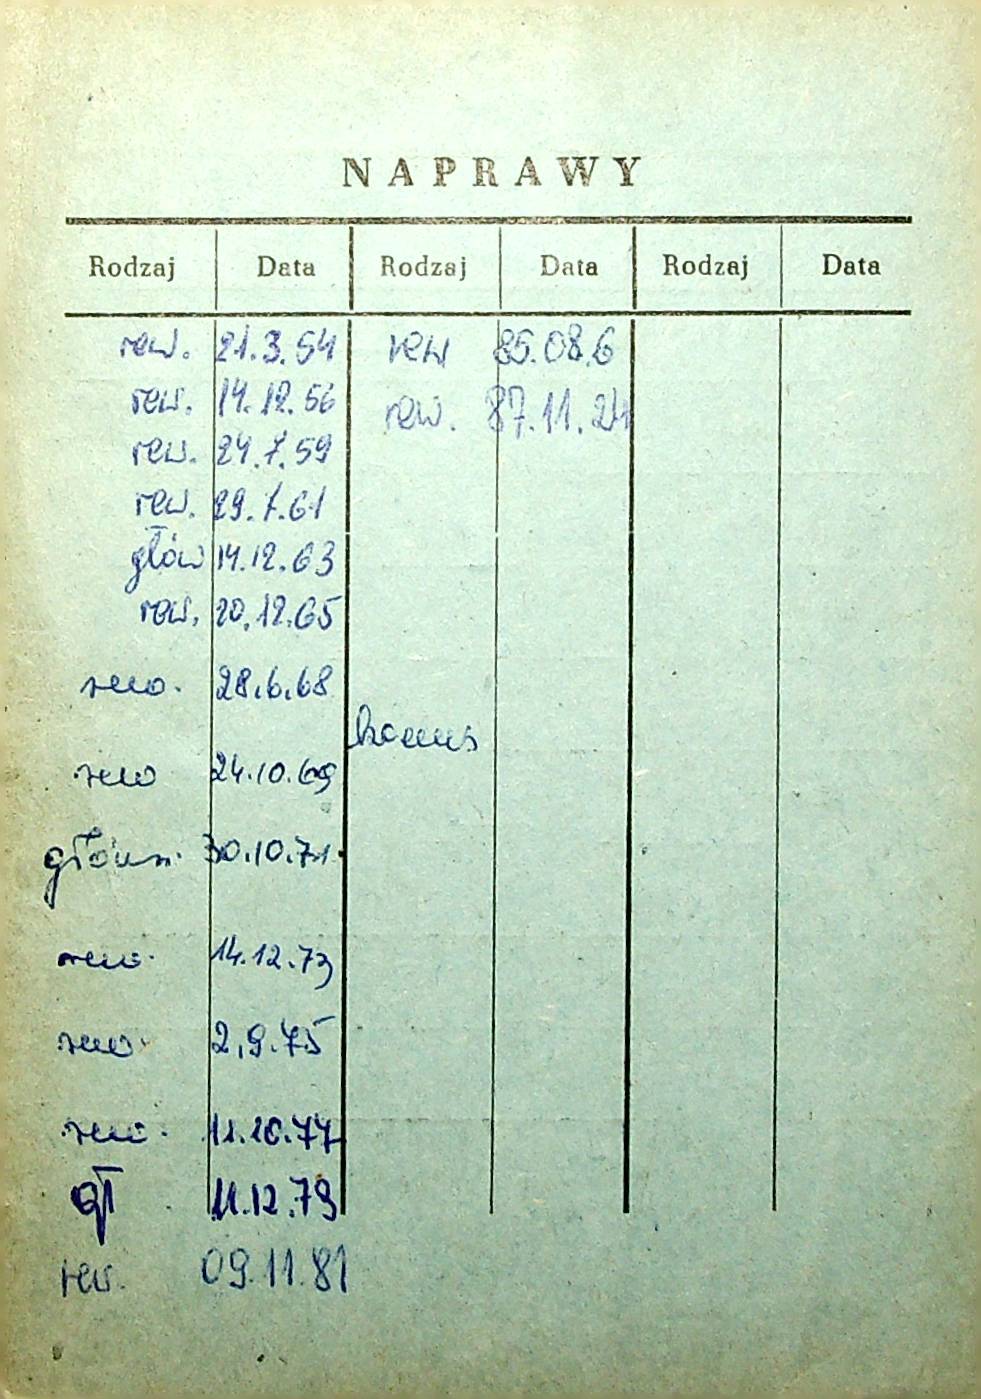 NAPRAWY
Rodzaj Data Rodzaj Data Rodzaj Data
rew. 21.3.54 rew 85.08.6
rew. 14.12.56 rew. 87.11.24
rew. 24.7.59
rew. 29.7.61
głów 14.12.63
rew. 20.12.65
rew. 28.6.68
rew 24.10.69
główn. 30.10.71.
rew. 14.12.73
rew. 2.9.75
rew. 11.10.77
gł 11.12.79
rew. 09.11.81